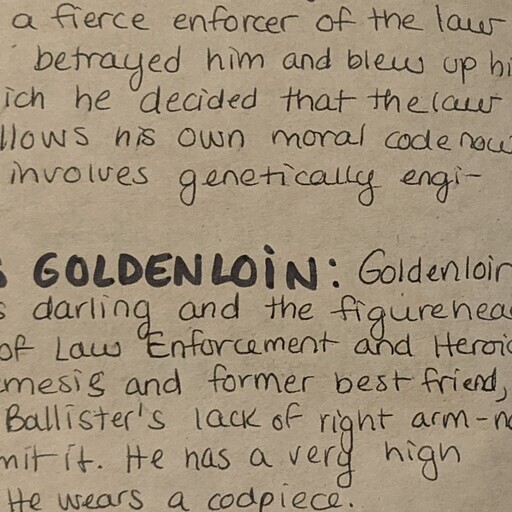 a fierce enforcer of the law
betrayed him and blew up hi
ich he decided that the law
llows his own moral code now
involves genetically engi-
S GOLDENLOIN: Goldenloin
s darling and the figurehea
of Law Enforcement and Heroic
mesis and former best friend,
Ballister's lack of right arm-no
mit it. He has a very high
He wears a codpiece.